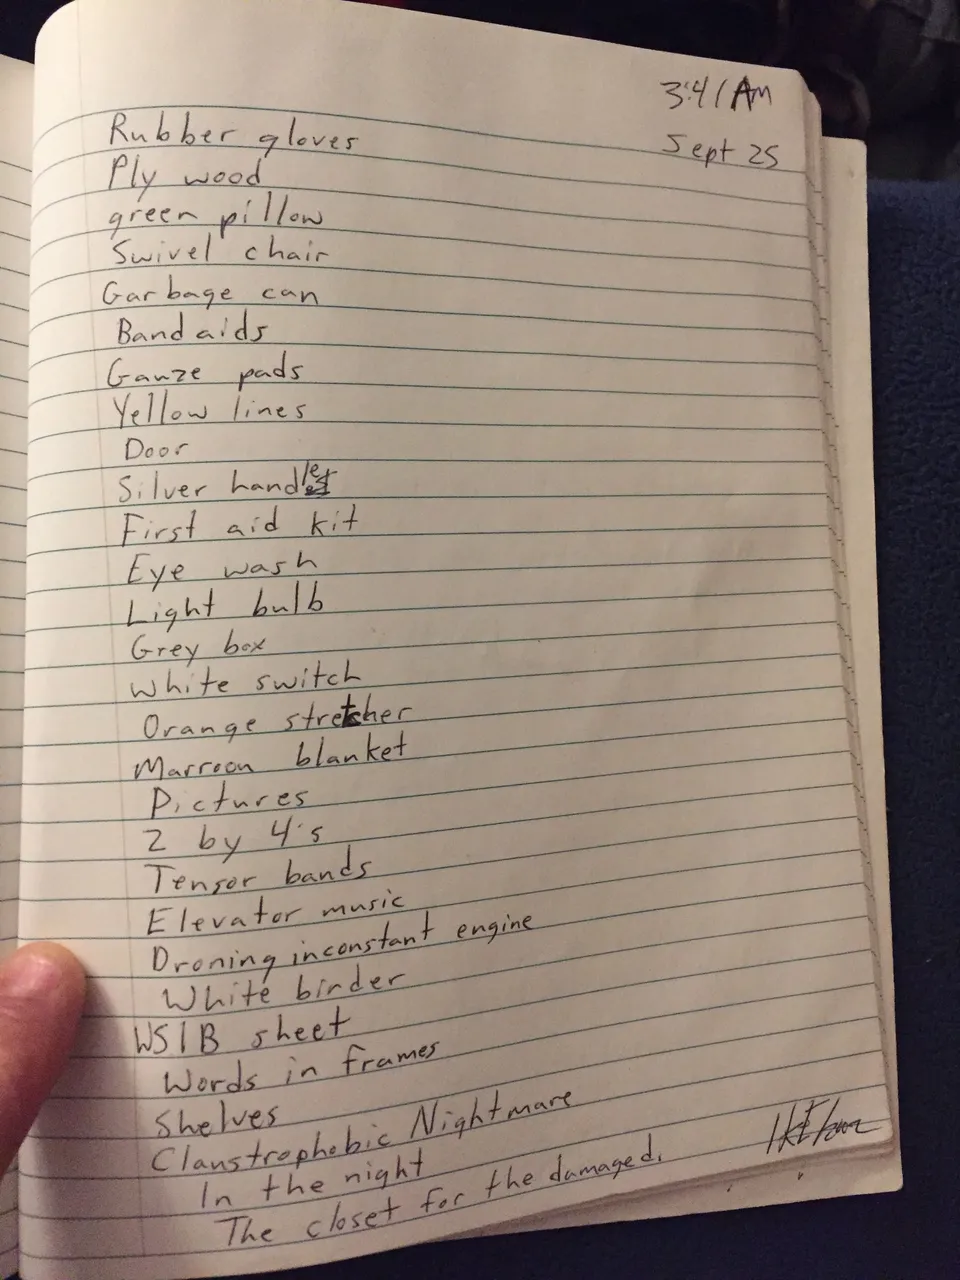 3:41 AM
Sept 25
Rubber gloves
Ply wood
green pillow
Swivel chair
Garbage can
Band aids
Gauze pads
Yellow lines
Door
Silver handle
First aid kit
Eye wash
Light bulb
Grey box
White switch
Orange stretcher
Marroon blanket
Pictures
2 by 4's
Tensor bands
Elevator music
Droning inconstant engine
White binder
WSIB sheet
Words in frames
Shelves
Claustrophobic Nightmare
In the night
The closet for the damaged.